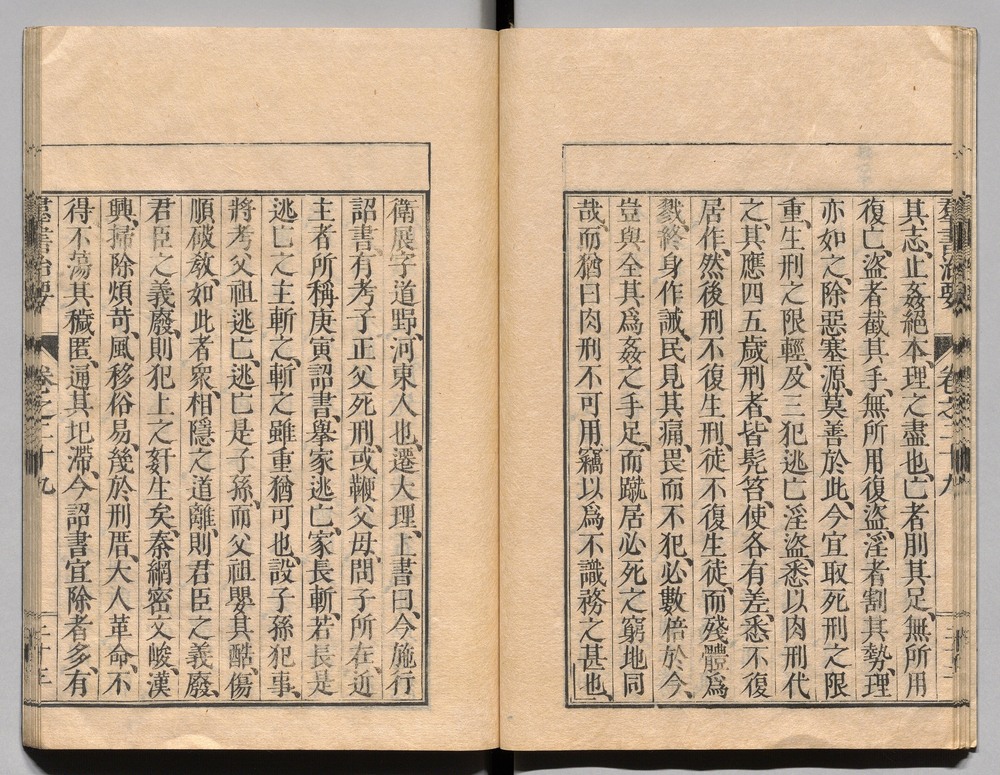 羣書治要 卷之二十九
其志、止姦絕本、理之盡也、亡者刖其足、無所用
復亡、盜者截其手、無所用復盜、淫者割其勢、理
亦如之、除惡塞源、莫善於此、今宜取死刑之限
重、生刑之限輕、及三犯逃亡淫盜、悉以肉刑代
之、其應四五歲刑者、皆髡笞、使各有差、悉不復
居作、然後刑不復生刑、徒不復生徒、而殘體爲
戮、終身作誡、民見其痛、畏而不犯、必數倍於今、
豈與全其爲姦之手足、而蹴居必死之窮地同
哉、而猶曰肉刑不可用、竊以爲不識務之甚也、
衛展字道野、河東人也、遷大理、上書曰、今施行
詔書、有考子正父死刑、或鞭父母、問子所在、近
主者所稱庚寅詔書、擧家逃亡、家長斬、若長是
逃亡之主、斬之、斬之雖重猶可也、設子孫犯事、
將考父祖逃亡、逃亡是子孫、而父祖嬰其酷、傷
順破敎、如此者衆、相隱之道離、則君臣之義廢、
君臣之義廢、則犯上之奸生矣、秦網密文峻、漢
興、掃除煩苛、風移俗易、幾於刑厝、大人革命、不
得不蕩其穢匿、通其圯滯、今詔書宜除者多、有
羣書治要 卷之二十九 二十三